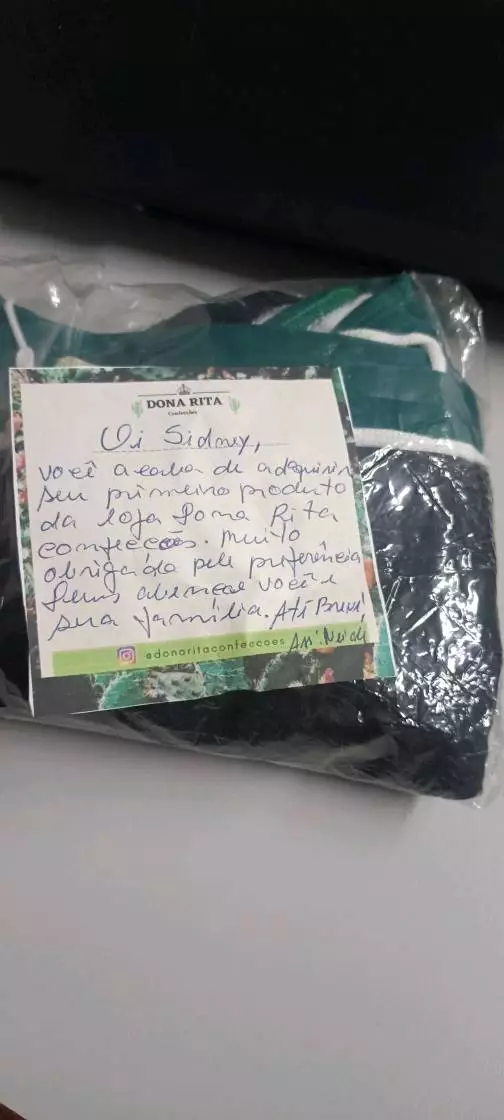 DONA RITA
Confecções
Oi Sidney,
você acaba de adequirir
seu primeiro produto
da loja Dona Rita
confecções. muito
obrigado pela preferência
Deus abençoe você e
sua família. Até Breve!
@donaritaconfeccoes Ass: Neide